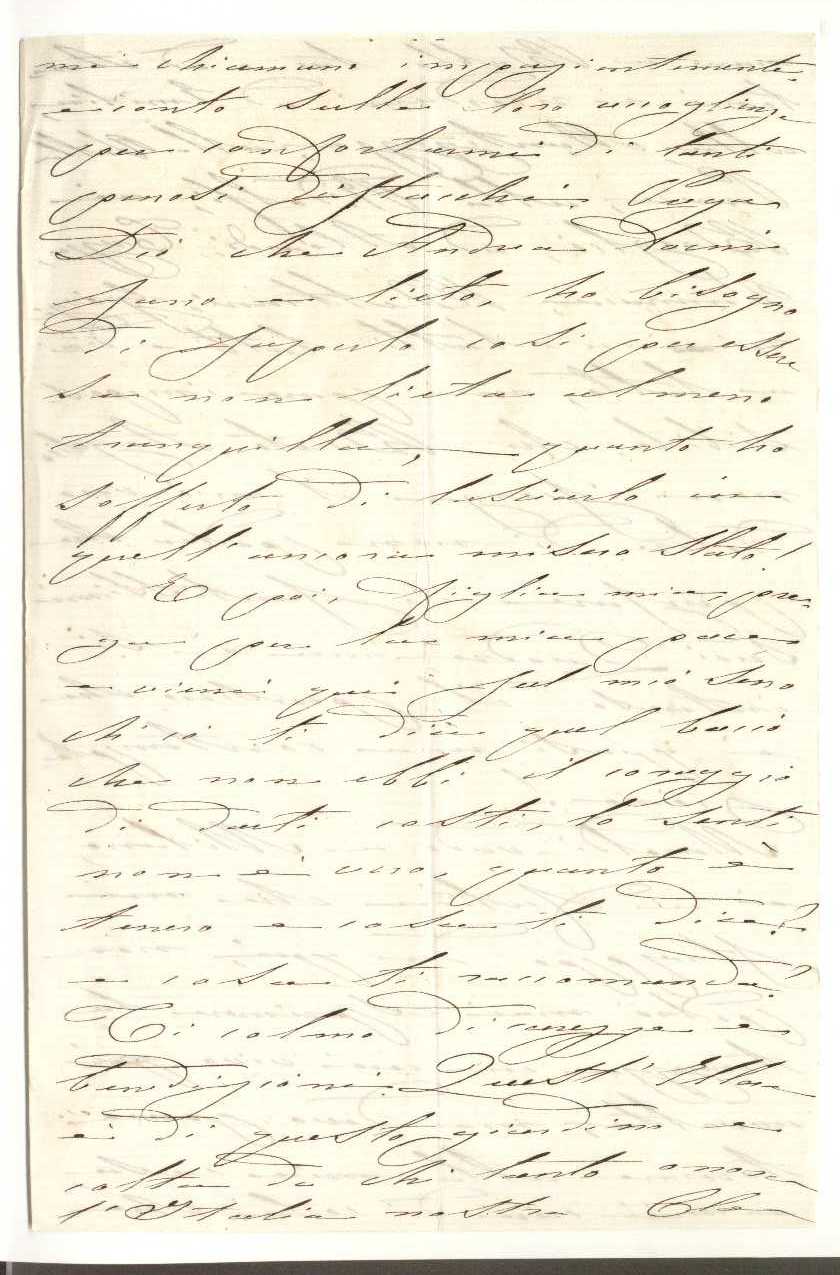 mi chiamano impazientemente
e conto sulle loro accoglienze
per confortarmi di tanti
penosi distacchi. Prega
Dio che Andrea torni
sano e lieto, ho bisogno
di saperlo così per essere
se non lieta almeno
tranquilla, quanto ho
sofferto di lasciarlo in
quell'ancora misero stato!
E poi, figlia mia, pre-
ga per la mia pace
e vieni qui sul mio seno
ch'io ti dia quel bacio
che non ebbi il coraggio
di darti costì, lo senti
non è vero, quanto è
tenero e cosa ti dice?
e cosa ti raccomanda?
Ti colmo di carezze e
benedizioni. Quest'Ellera
è di questo giardino e
colta da chi tanto onora
l'Italia nostra